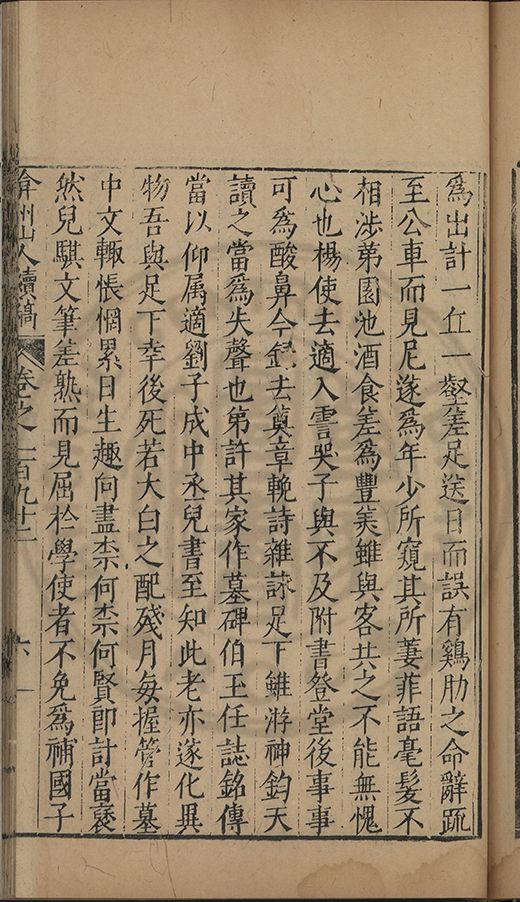 爲出計一丘一壑差足送日而誤有鷄肋之命辭疏
至公車而見尼遂爲年少所窺其所萋菲語毫髮不
相涉第園池酒食差爲豐美雖與客共之不能無愧
心也楊使去適入雪哭子與不及附書登堂後事事
可爲酸鼻今錄去奠章輓詩雜詠足下雖游神鈞天
讀之當爲失聲也第許其家作墓碑伯玉任誌銘傳
當以仰属適劉子成中丞兒書至知此老亦遂化異
物吾與足下幸後死若大白之配殘月每握管作墓
中文輙悵惘累日生趣向盡柰何柰何賢郎計當褎
然兒騏文筆差熟而見屈於學使者不免爲補國子
弇州山人續稿 卷之一百九十二 六